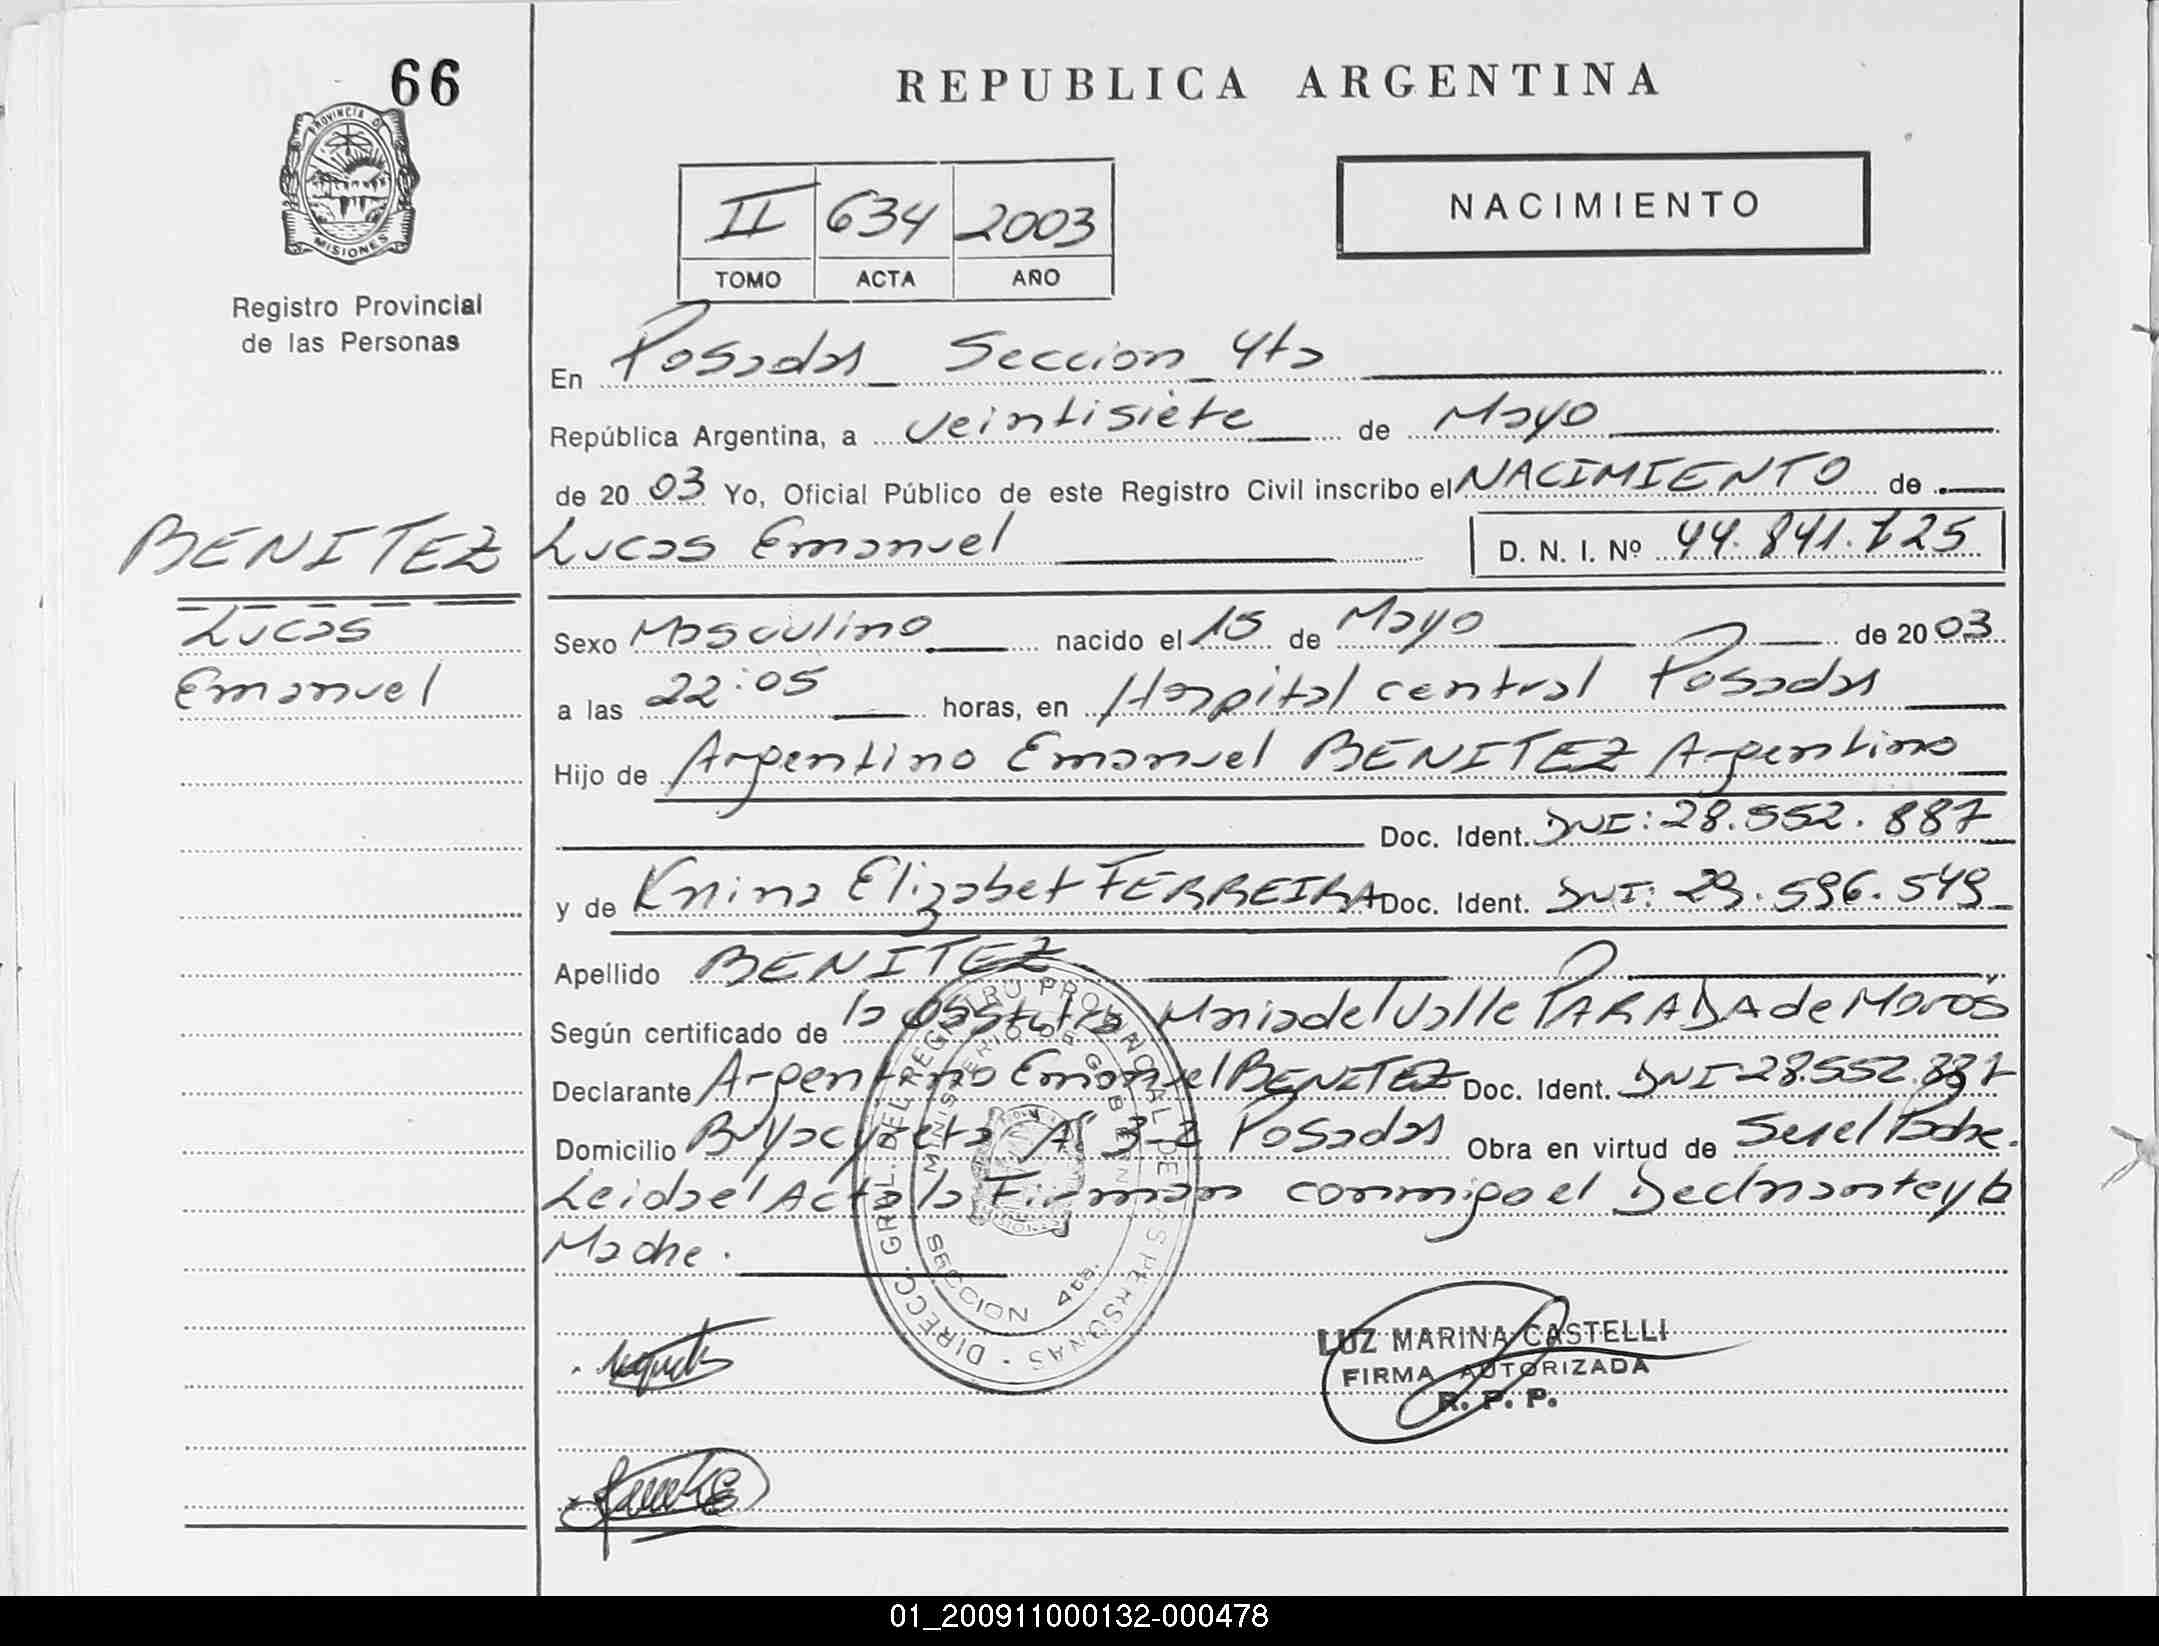 66
REPUBLICA ARGENTINA
PROVINCIA D
MISIONES
Registro Provincial
de las Personas
NACIMIENTO
II 634 2003
TOMO ACTA AÑO
En Posadas Seccion 4ta
República Argentina, a veintisiete de Mayo
de 20 03 Yo, Oficial Público de este Registro Civil inscribo el NACIMIENTO de
BENITEZ Lucas Emanuel D. N. I. Nº 44.841.125
Lucas
Emanuel
Sexo Masculino nacido el 15 de Mayo de 20 03
a las 22:05 horas, en Hospital central Posadas
Hijo de Argentino Emanuel BENITEZ Argentino
Doc. Ident. DNI: 28.552.887
y de Elizabet FERREIRA Doc. Ident. DNI: 29.596.549
Apellido BENITEZ
Según certificado de la Maria del Valle PARADA de
Declarante Argentino Emanuel BENITEZ Doc. Ident. DNI 28.552.887
Domicilio Posadas Obra en virtud de Ser el Padre.
Leida el Acta la Firman conmigo el Declarante y la
Madre.
DIRECC. GRAL. DEL REGISTRO PROVINCIAL DE LAS PERSONAS
MINISTERIO DE GOBIERNO
SECCION 4ta.
LUZ MARINA CASTELLI
FIRMA AUTORIZADA
R. P. P.
01_200911000132-000478